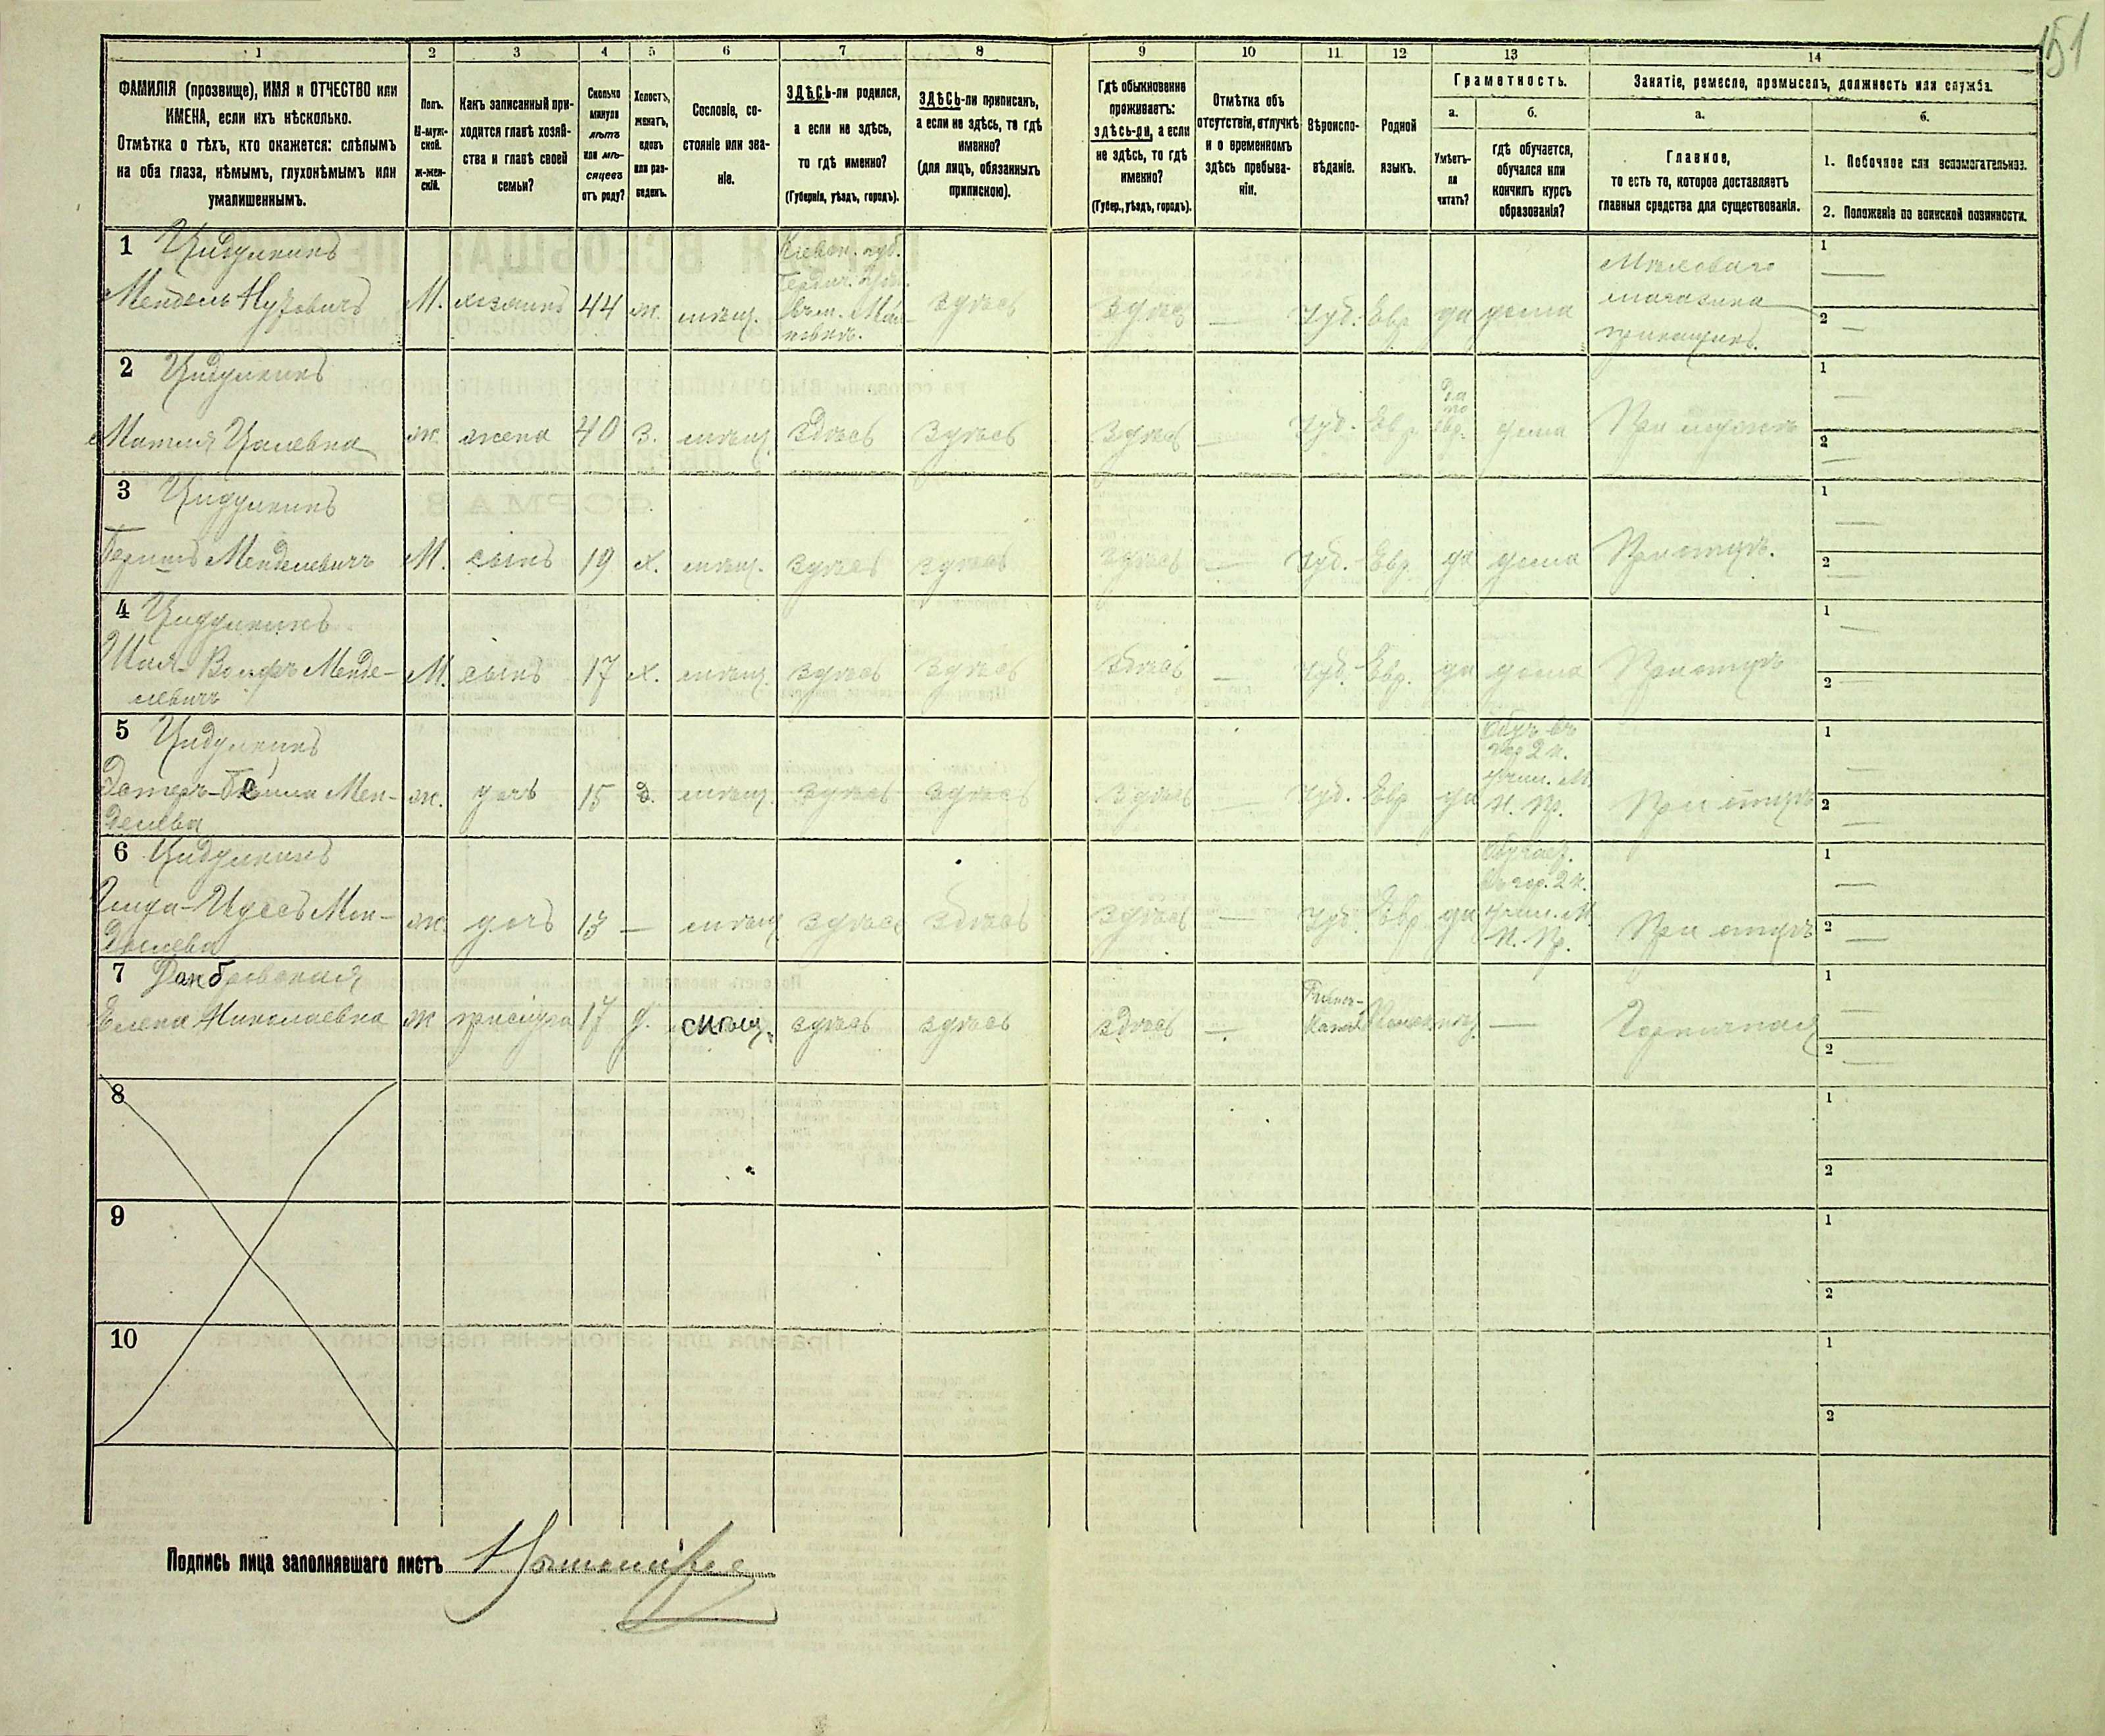 151
1 2 3 4 5 6 7 8 9 10 11. 12 13 14
ФАМИЛІЯ (прозвище), ИМЯ и ОТЧЕСТВО или
ИМЕНА, если ихъ нѣсколько.
Отмѣтка о тѣхъ, кто окажется: слѣпымъ
на оба глаза, нѣмымъ, глухонѣмымъ или
умалишеннымъ.
Полъ.
М-муж-
ской.
ж-жен-
скій.
Какъ записанный при-
ходится главѣ хозяй-
ства и главѣ своей
семьи?
Сколько
минуло
лѣтъ
или мѣ-
сяцевъ
отъ роду?
Холостъ,
женатъ,
вдовъ
или раз-
веденъ.
Сословіе, со-
стояніе или зва-
ніе.
ЗДѢСЬ-ли родился,
а если не здѣсь,
то гдѣ именно?
(Губернія, уѣздъ, городъ).
ЗДѢСЬ-ли приписанъ,
а если не здѣсь, то гдѣ
именно?
(для лицъ, обязанныхъ
припискою).
Гдѣ обыкновенно
проживаетъ:
здѣсь-ли, а если
не здѣсь, то гдѣ
именно?
(Губер., уѣздъ, городъ).
Отмѣтка объ
отсутствіи, отлучкѣ
и о временномъ
здѣсь пребыва-
ніи.
Вѣроиспо-
вѣданіе.
Родной
языкъ.
Грамотность.
а.
Умѣетъ-
ли
читать?
б.
гдѣ обучается,
обучался или
кончилъ курсъ
образованія?
Занятіе, ремесло, промыселъ, должность или служба.
а.
Главное,
то есть то, которое доставляетъ
главныя средства для существованія.
б.
1. Побочное или вспомогательное.
2. Положеніе по воинской повинности.
1 Цидулкинъ
Мендель М. хозяинъ 44 ж. мѣщ. Кіевск. губ.
здѣсь здѣсь — Іуд. Евр. да дома
магазина
прикащикъ
1 —
2 —
2 Цидулкинъ
ж. жена 40 З. мѣщ. Здѣсь Здѣсь Здѣсь — Іуд. Евр. Да
по
евр. дома При мужѣ
1 —
2 —
3 Цидулкинъ
Менделевичъ М. сынъ 19 х. мѣщ. здѣсь здѣсь здѣсь — Іуд. Евр. да дома При отцѣ.
1 —
2 —
4 Цидулкинъ
Вольфъ Менде-
левичъ М. сынъ 17 х. мѣщ. здѣсь здѣсь здѣсь — Іуд. Евр. да дома При отцѣ
1 —
2 —
5 Цидулкинъ
Мен-
делева ж. дочь 15 д. мѣщ. здѣсь здѣсь здѣсь — Іуд. Евр да
Обуч. въ
гор 2 к.
учил. М.
Н. Пр.
При отцѣ
1 —
2 —
6 Цидулкинъ
Мен-
делева ж. дочь 13 — мѣщ. здѣсь здѣсь здѣсь — Іуд. Евр да
Обучает.
въ гор. 2 к.
учил. М.
Н. Пр.
При отцѣ
1 —
2 —
7 Домбровская
Елена Николаевна ж прислуга 17 д. мѣщ. здѣсь здѣсь здѣсь —
Римск-
Катол. — Горничная
1 —
2 —
8
1
2
9
1
2
10
1
2
Подпись лица заполнявшаго листъ